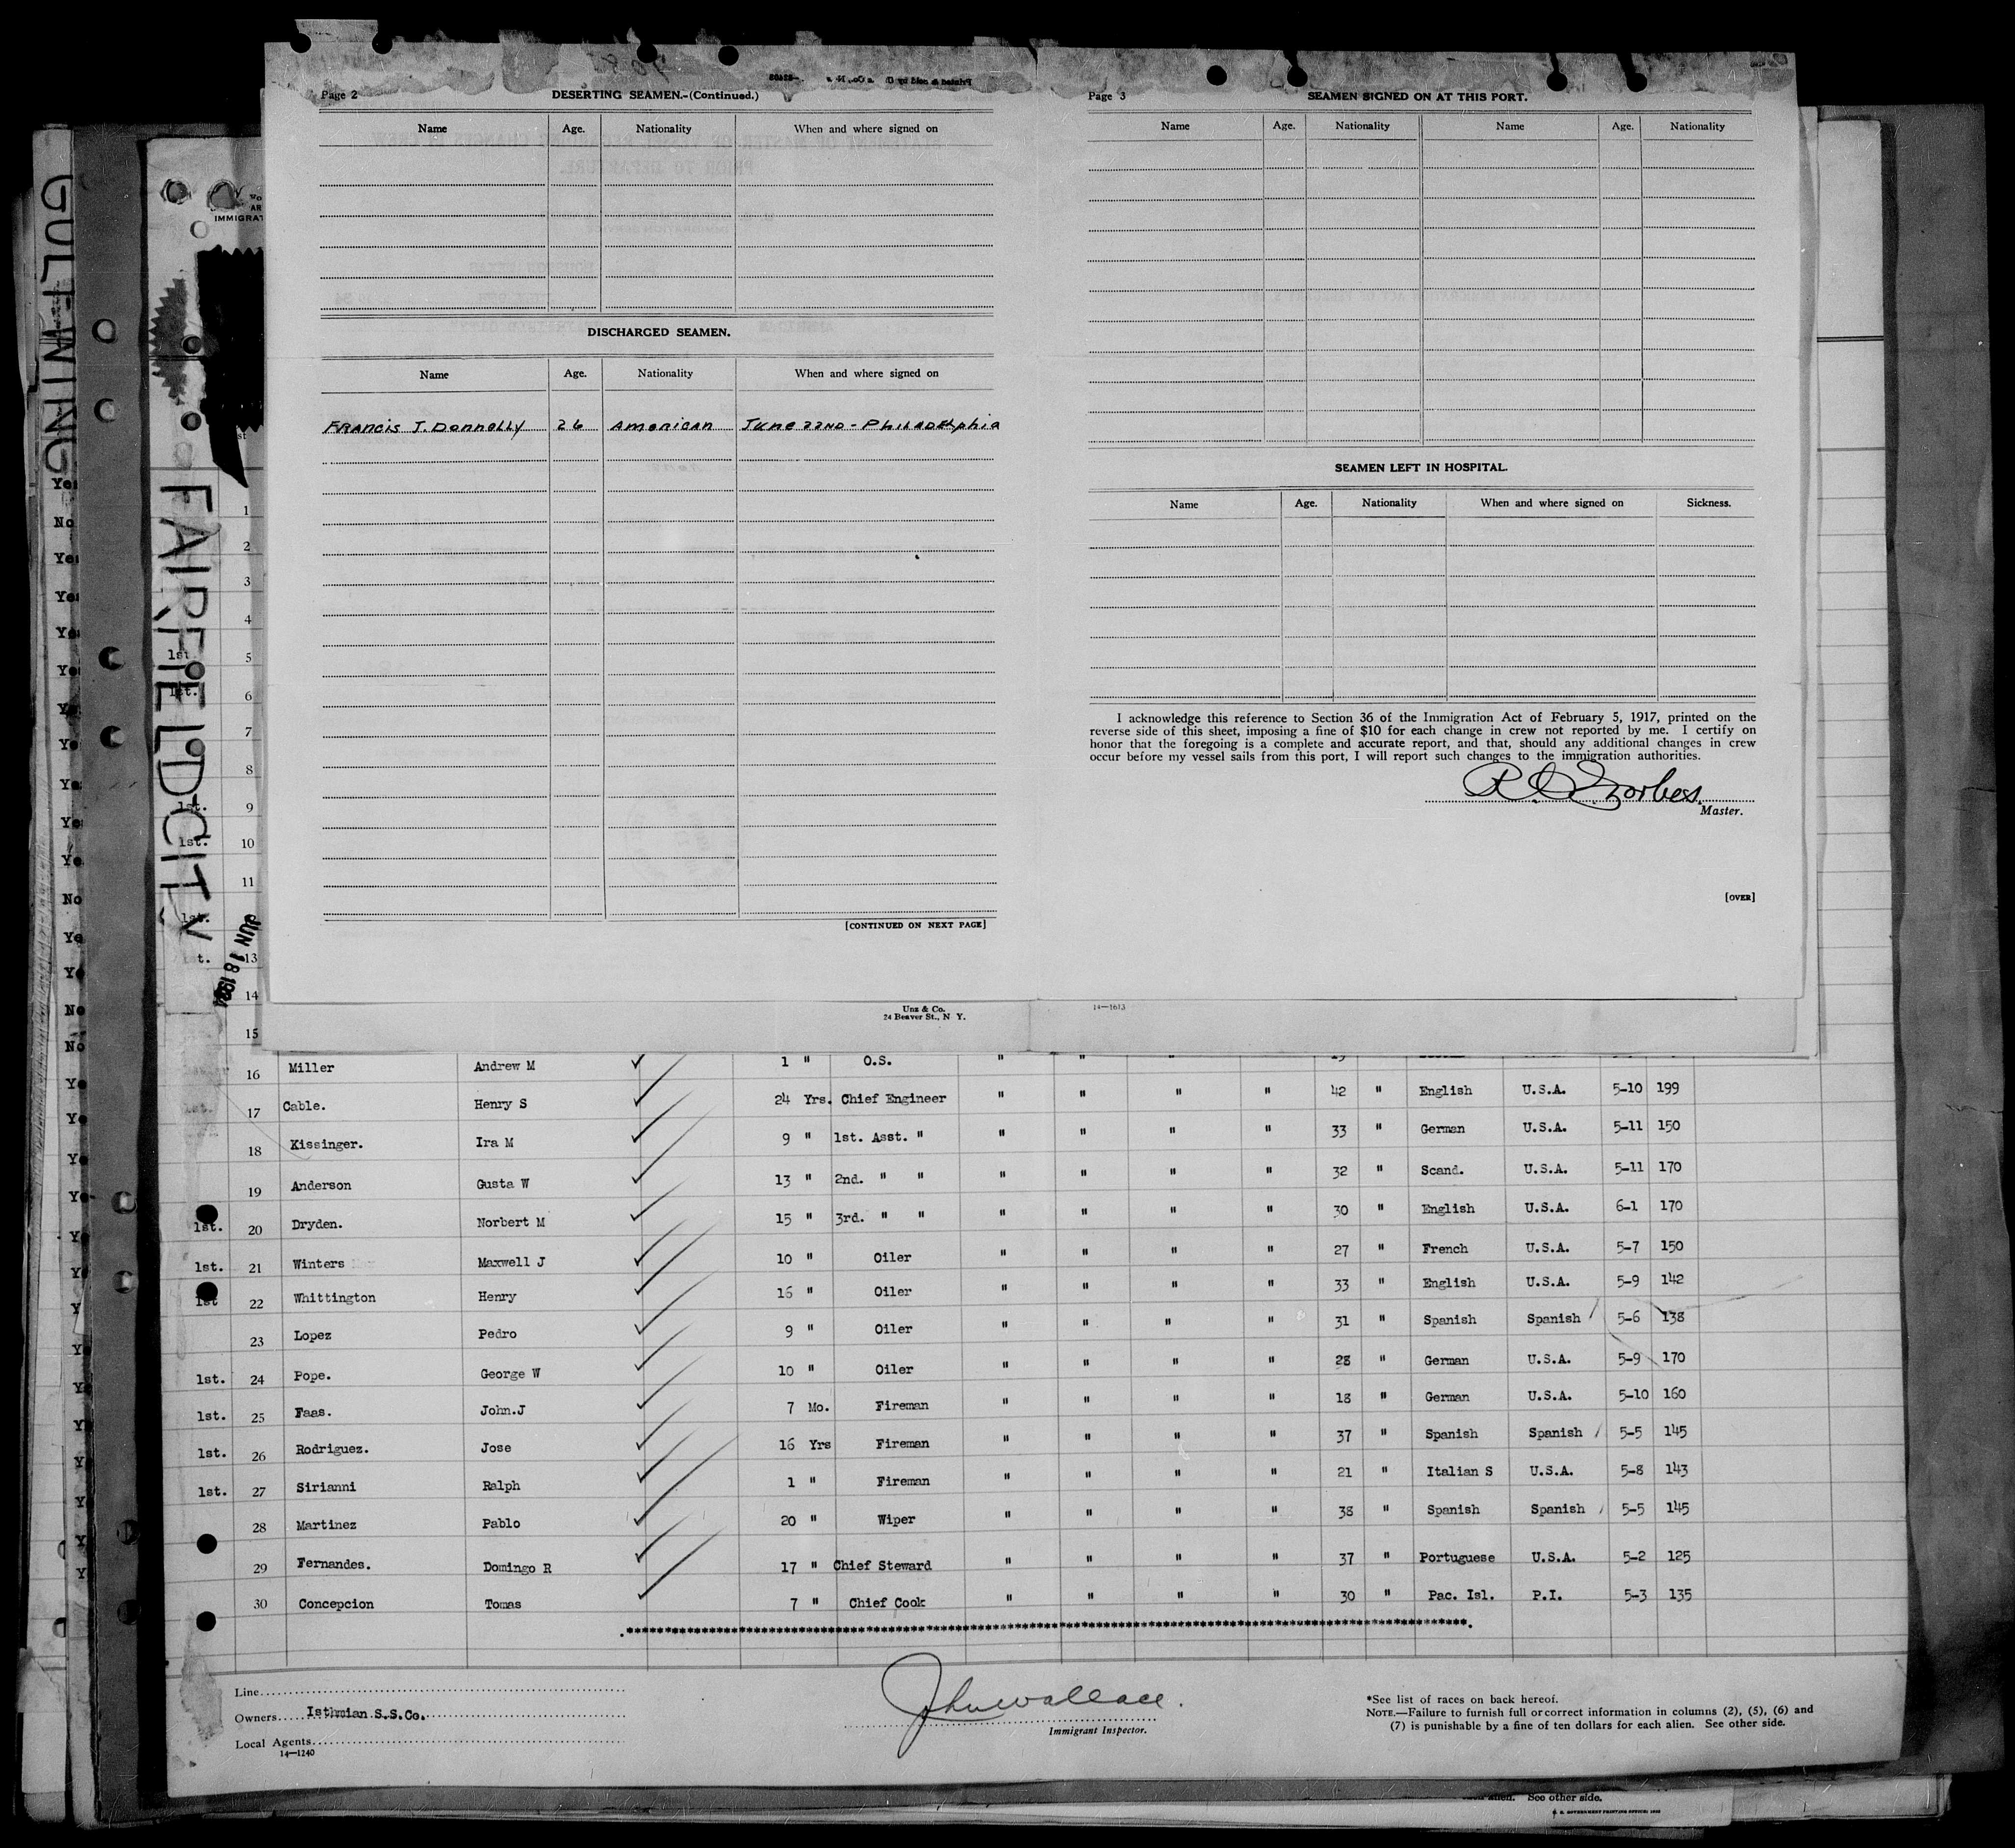 Page 2
DESERTING SEAMEN.-(Continued.)
Name Age. Nationality When and where signed on
DISCHARGED SEAMEN.
Name Age. Nationality When and where signed on
Francis J. Donnelly 26 American June 22nd - Philadelphia
[CONTINUED ON NEXT PAGE]
Page 3
SEAMEN SIGNED ON AT THIS PORT.
Name Age. Nationality Name Age. Nationality
SEAMEN LEFT IN HOSPITAL.
Name Age. Nationality When and where signed on Sickness.
I acknowledge this reference to Section 36 of the Immigration Act of February 5, 1917, printed on the
reverse side of this sheet, imposing a fine of $10 for each change in crew not reported by me. I certify on
honor that the foregoing is a complete and accurate report, and that, should any additional changes in crew
occur before my vessel sails from this port, I will report such changes to the immigration authorities.
Master.
[OVER]
Unz & Co.
24 Beaver St., N Y.
14-1613
GULFWING
FAIRFIELD CITY
JUN 18 1934
1
2
3
4
1st. 5
1st. 6
7
8
1st. 9
1st. 10
11
1st.
13
14
15
16 Miller Andrew M 1 " O.S. " " " "
17 Cable. Henry S 24 Yrs. Chief Engineer " " " " 42 " English U.S.A. 5-10 199
18 Kissinger. Ira M 9 " 1st. Asst. " " " " " 33 " German U.S.A. 5-11 150
19 Anderson Gusta W 13 " 2nd. " " " " " " 32 " Scand. U.S.A. 5-11 170
1st. 20 Dryden. Norbert M 15 " 3rd. " " " " " " 30 " English U.S.A. 6-1 170
1st. 21 Winters Maxwell J 10 " Oiler " " " " 27 " French U.S.A. 5-7 150
1st 22 Whittington Henry 16 " Oiler " " " " 33 " English U.S.A. 5-9 142
23 Lopez Pedro 9 " Oiler " " " " 31 " Spanish Spanish 5-6 138
1st. 24 Pope. George W 10 " Oiler " " " " 28 " German U.S.A. 5-9 170
1st. 25 Faas. John.J 7 Mo. Fireman " " " " 18 " German U.S.A. 5-10 160
1st. 26 Rodriguez. Jose 16 Yrs Fireman " " " " 37 " Spanish Spanish 5-5 145
1st. 27 Sirianni Ralph 1 " Fireman " " " " 21 " Italian S U.S.A. 5-8 143
28 Martinez Pablo 20 " Wiper " " " " 38 " Spanish Spanish 5-5 145
29 Fernandes. Domingo R 17 " Chief Steward " " " " 37 " Portuguese U.S.A. 5-2 125
30 Concepcion Tomas 7 " Chief Cook " " " " 30 " Pac. Isl. P.I. 5-3 135
Line
Owners Isthmian S.S.Co.
Local Agents
14-1240
John Wallace.
Immigrant Inspector.
*See list of races on back hereof.
NOTE.—Failure to furnish full or correct information in columns (2), (5), (6) and
(7) is punishable by a fine of ten dollars for each alien. See other side.
See other side.